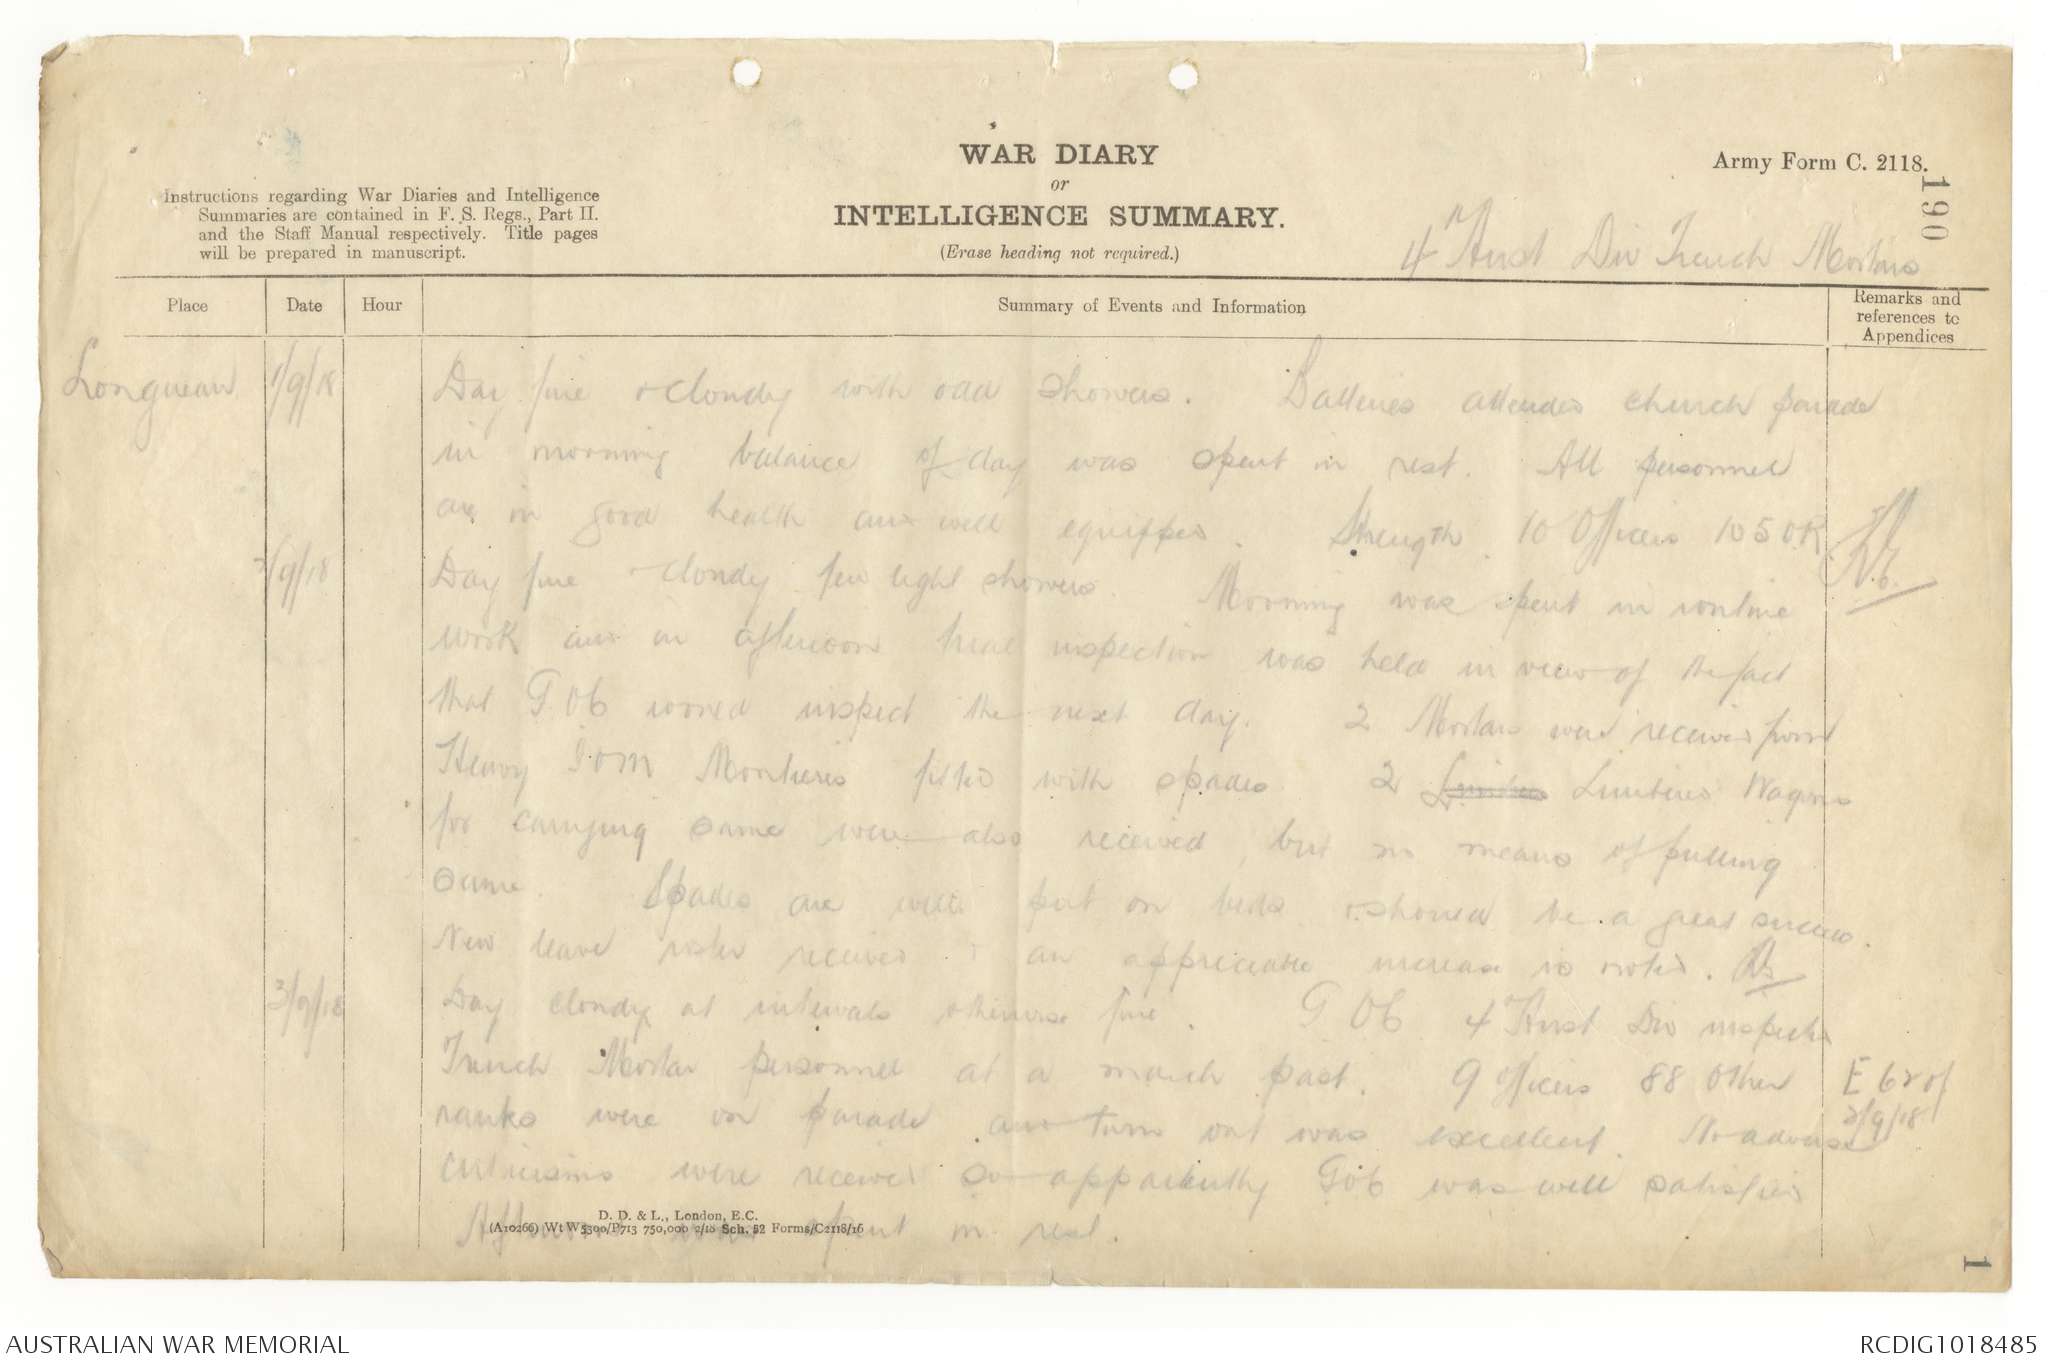 WAR DIARY
or
INTELLIGENCE SUMMARY.
(Erase heading not required.)
Army Form C. 2118.
190
Instructions regarding War Diaries and Intelligence
Summaries are contained in F. S. Regs., Part II.
and the Staff Manual respectively. Title pages
will be prepared in manuscript.
4th Aust Div Trench Mortars
Place Date Hour Summary of Events and Information Remarks and references to Appendices
Longueau 1/9/18 Day fine & cloudy with odd showers. Batteries attended church parade
in morning balance of day was spent in rest. All personnel
are in good health and well equipped. Strength 10 Officers 105 OR
2/9/18 Day fine & cloudy few light showers. Morning was spent in routine
work and in afternoon trial inspection was held in view of the fact
that G.O.C would inspect the next day. 2 Mortars were received from
Heavy I.O.M fitted with spades 2 Limbers Wagons
for carrying same were also received, but no means of pulling
same. Spades are well put on beds & should be a great success.
New leave roster received & an appreciable increase is noted.
3/9/18 Day cloudy at intervals otherwise fine. G.O.C 4th Aust Div inspected
Trench Mortar personnel at a march past. 9 Officers 88 Other E 62 of
ranks were on parade and turn out was excellent. No adverse 3/9/18
criticisms were received so apparently GOC was well satisfied
Afternoon was spent in rest.
D. D. & L., London, E.C.
(A10266) Wt W5300/P713 750,000 2/18 Sch. 52 Forms/C2118/16
1
AUSTRALIAN WAR MEMORIAL RCDIG1018485